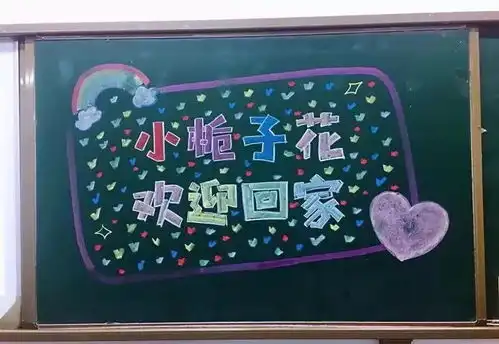 小栀子花
欢迎回家